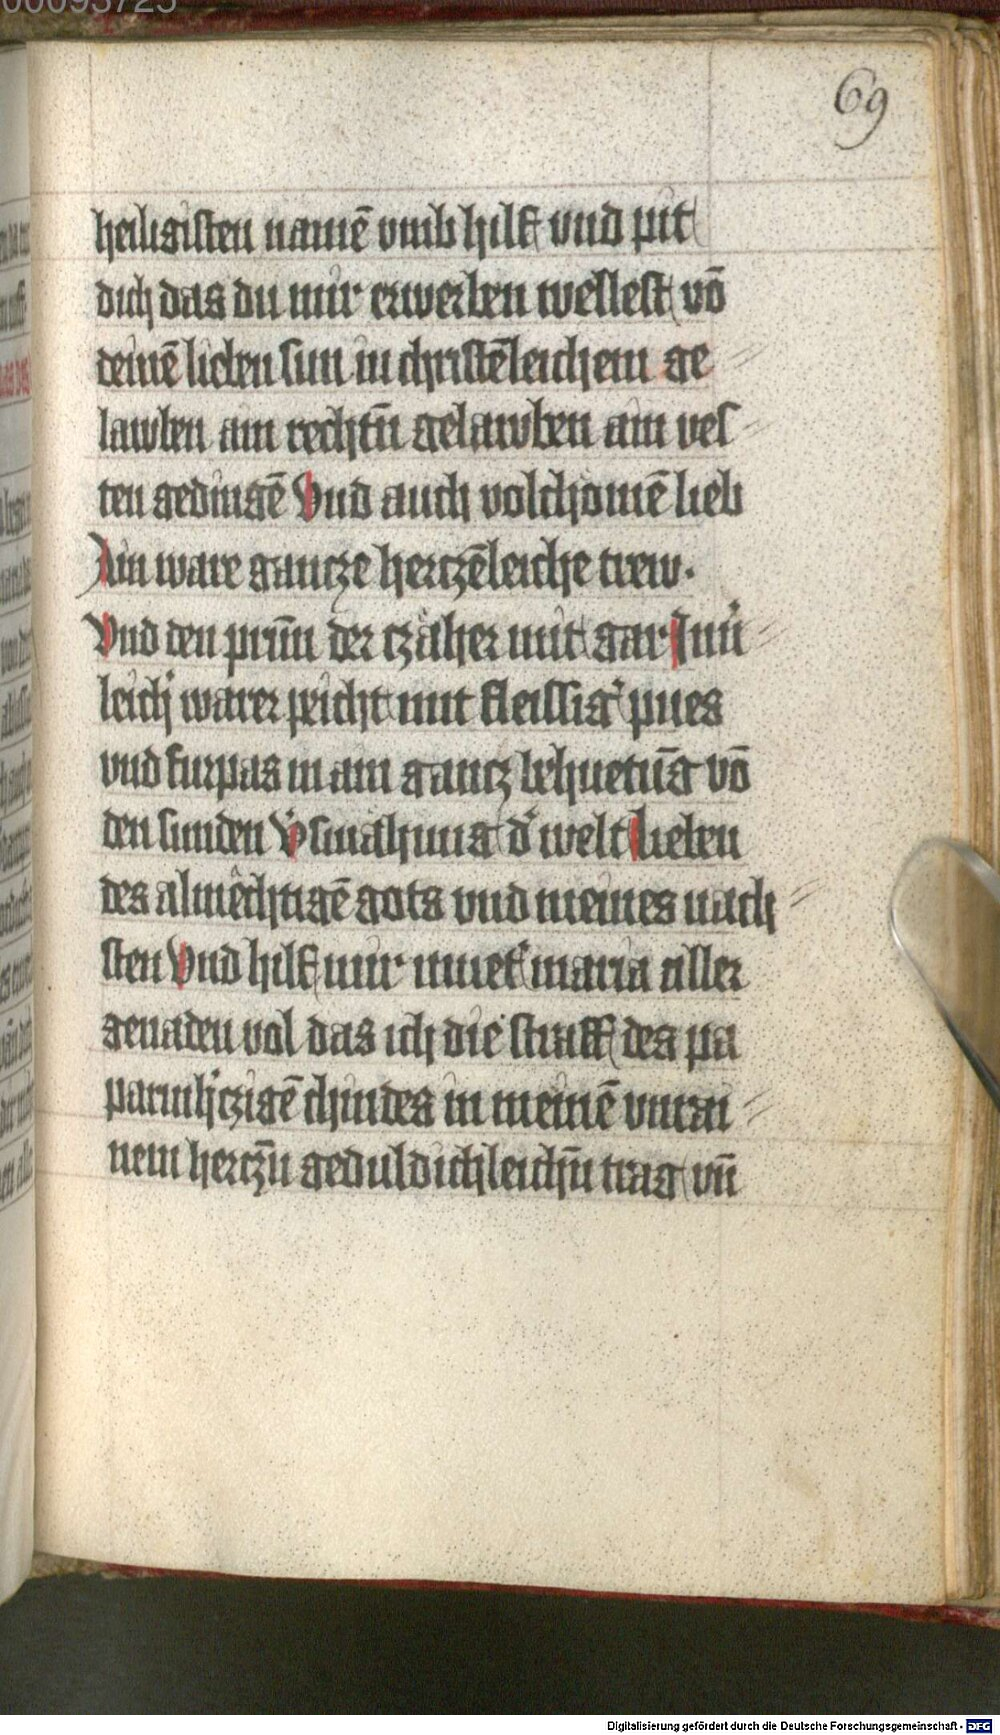 00093725
69
heiligisten namē vmb hilf vnd pit
dich das du mir erwerben wellest vō
deinē lieben sun in christēleichem ge
lawben ain rechtn̄ gelawben ain ves
ten gedingē Vnd auch volchomē lieb
Ain ware gancze herczēleiche trew.
Vnd den prun̄ der czäher mit gar Inn̄
leich' warer peicht mit fleissig' pues
vnd furpas in ain gancz behuetūg vō
den sunden V'smähung d' welt lieben
des almëchtigē gots vnd meines näch
sten Vnd hilf mir muet' maria aller
genaden vol das ich die straff des pa
parmh'czigē chindes in meinē vnrai
nem herczn̄ geduldichleichn̄ trag vn̄
Digitalisierung gefördert durch die Deutsche Forschungsgemeinschaft - DFG